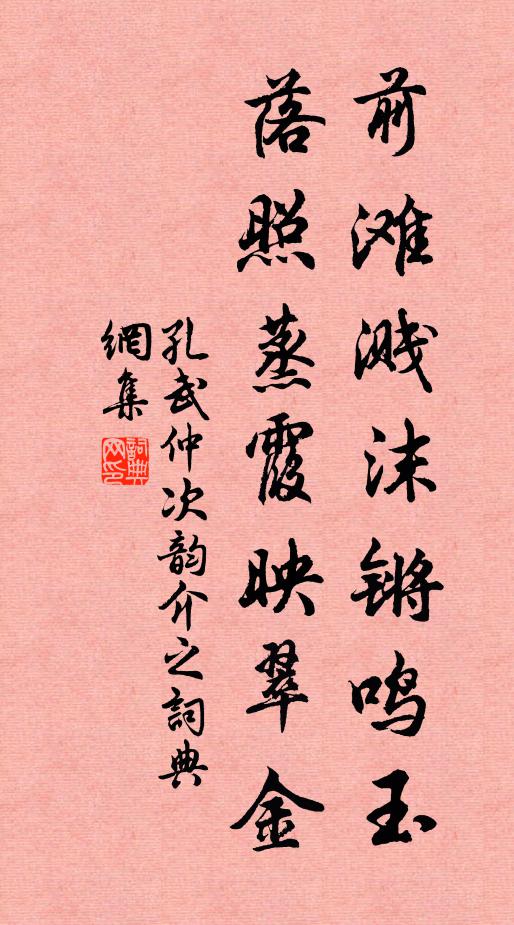 前滩溅沫锵鸣玉
落照蒸霞映翠金
孔武仲次韵介之詞典
網集
詞典网印